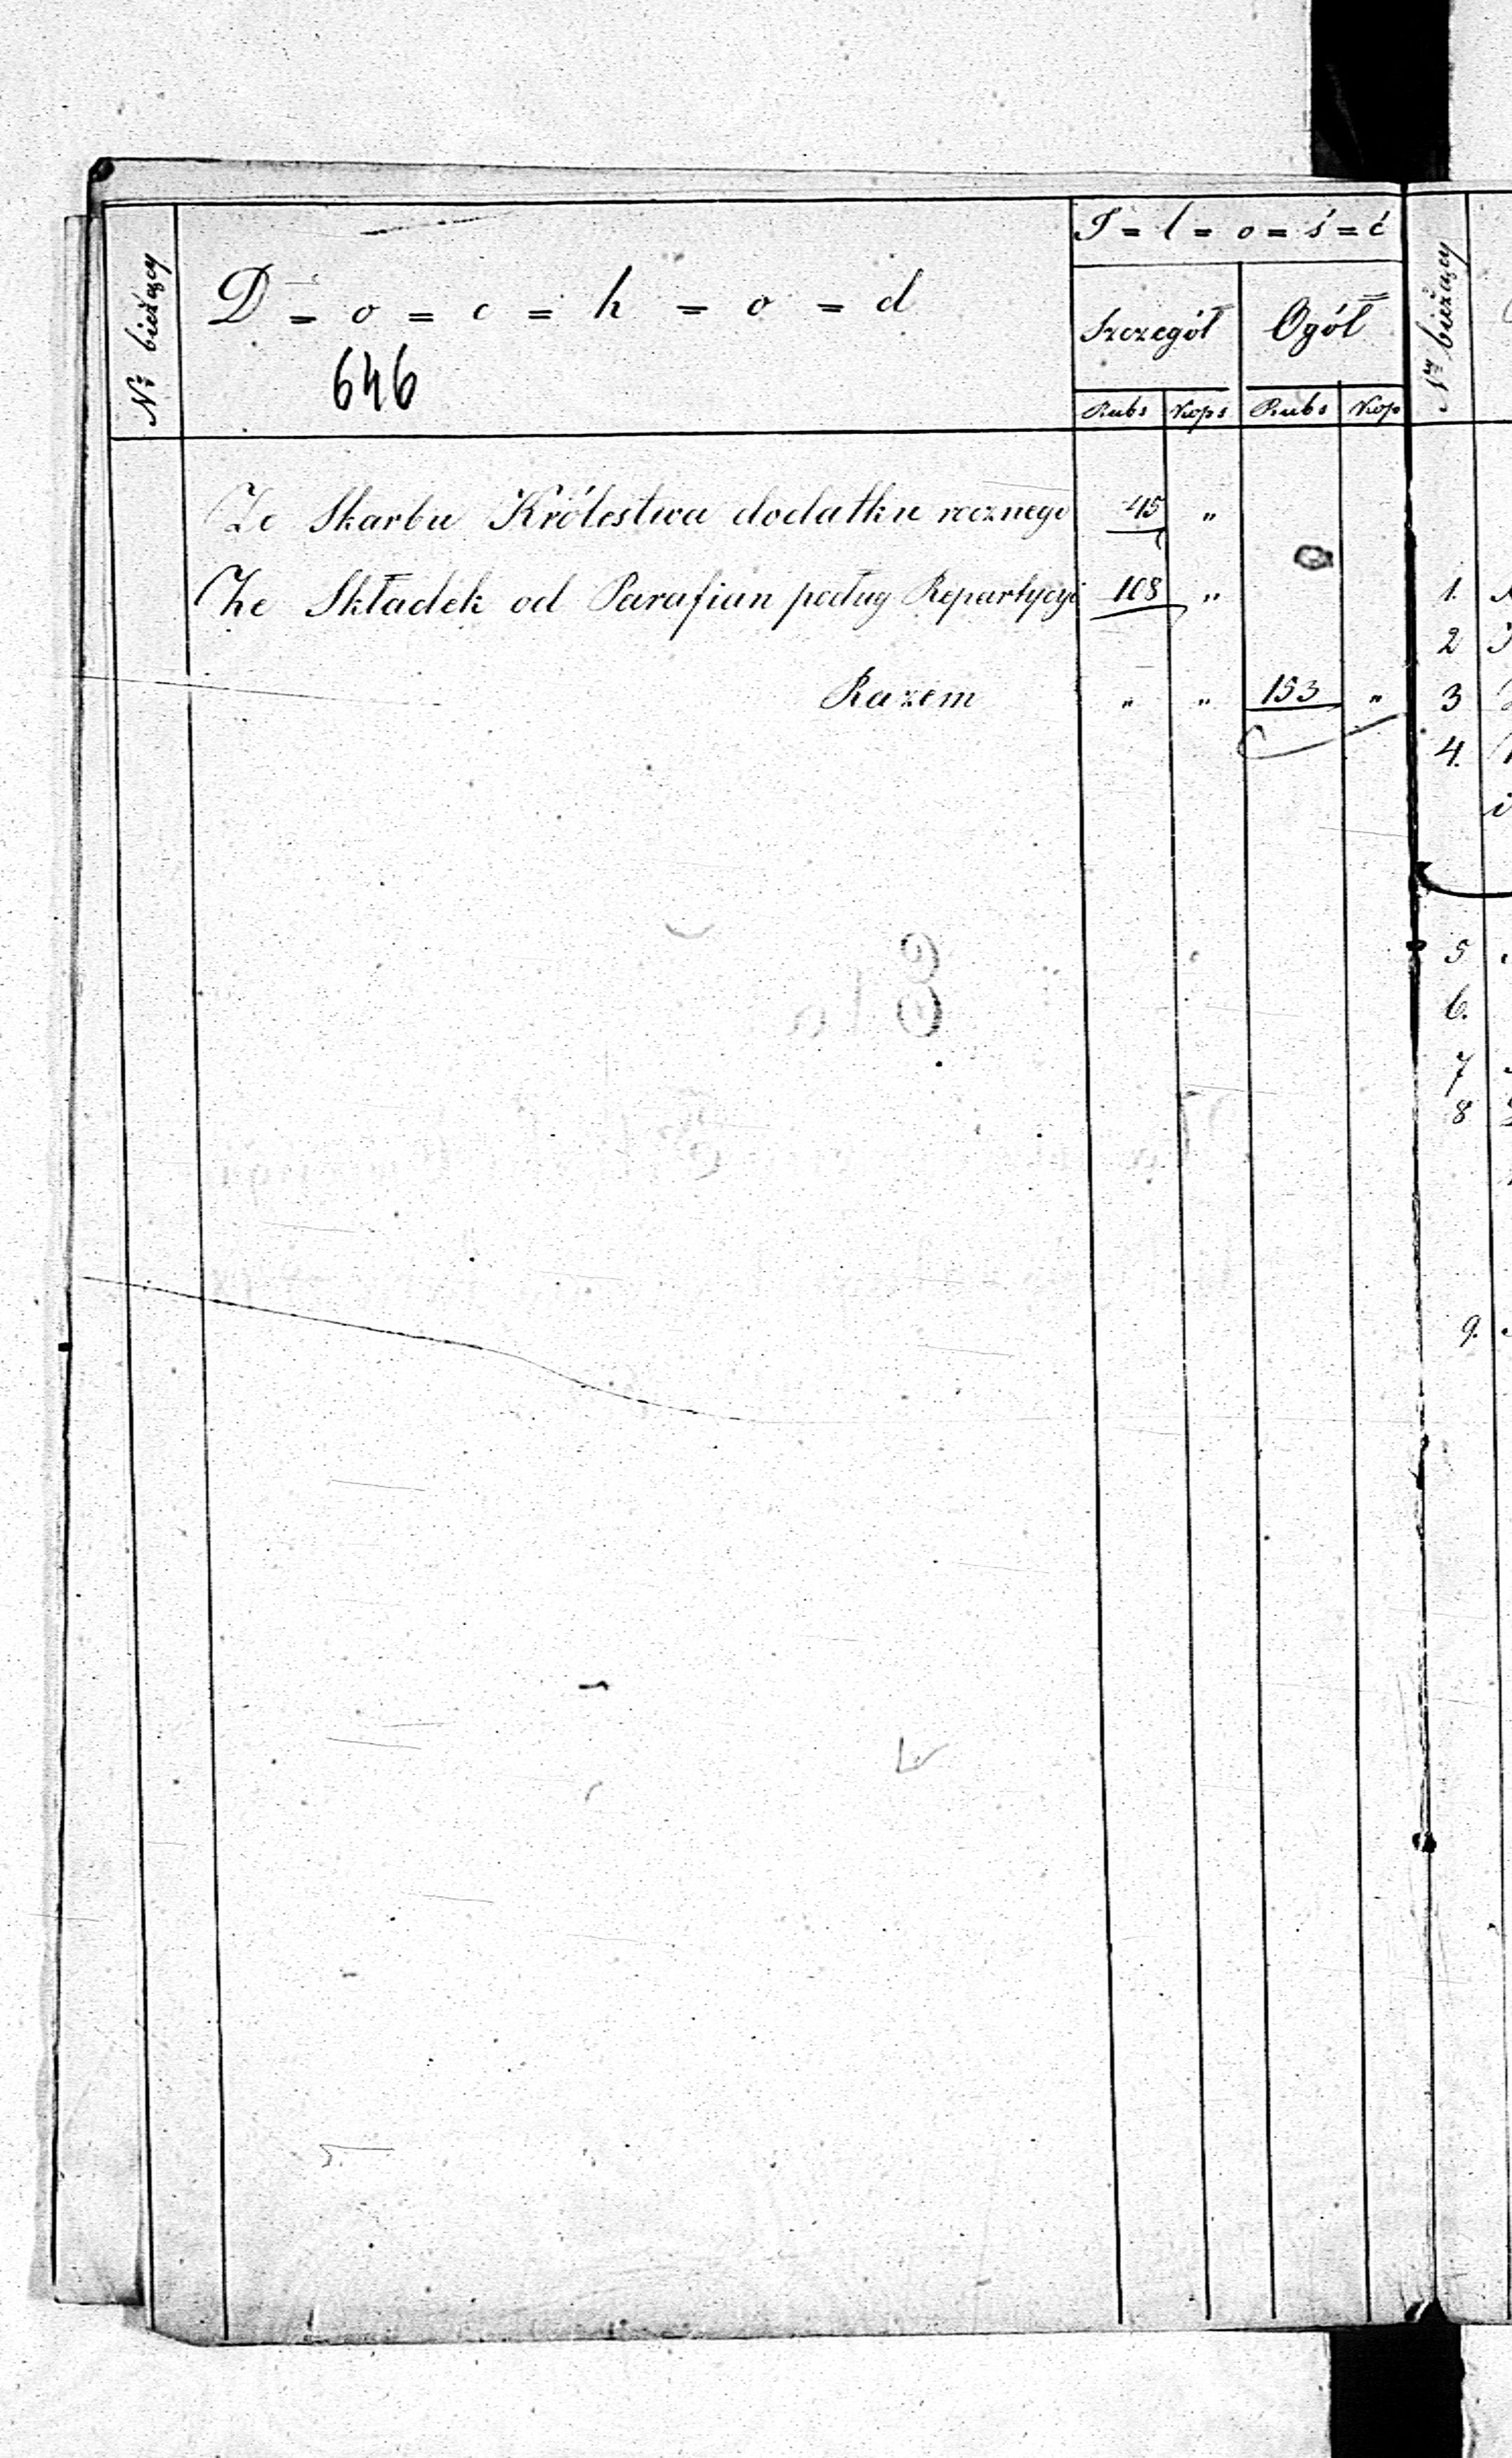 Nr bieżący
D = o = c = h = o = d
646
I = l = o = ś = ć
Szczegół
Ogół
Rubs Kops Rubs Kop
Ze Skarbu Królestwa dodatku rocznego 45 "
Ze Składek od Parafian podług Repartycyi 108 "
Razem " " 153 "
Nr bieżący
1.
2
3
4.
i
5
6.
7
8
9.